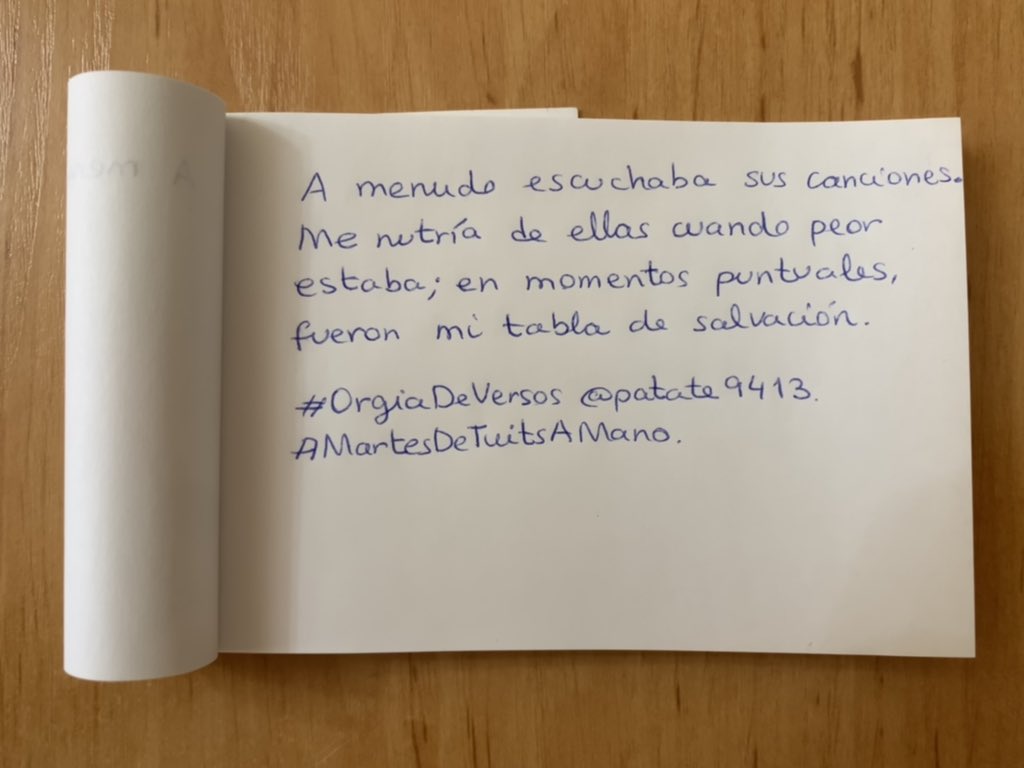 A menudo escuchaba sus canciones.
Me nutría de ellas cuando peor
estaba; en momentos puntuales,
fueron mi tabla de salvación.
#OrgiaDeVersos @patate9413.
AMartesDeTuitsAMano.